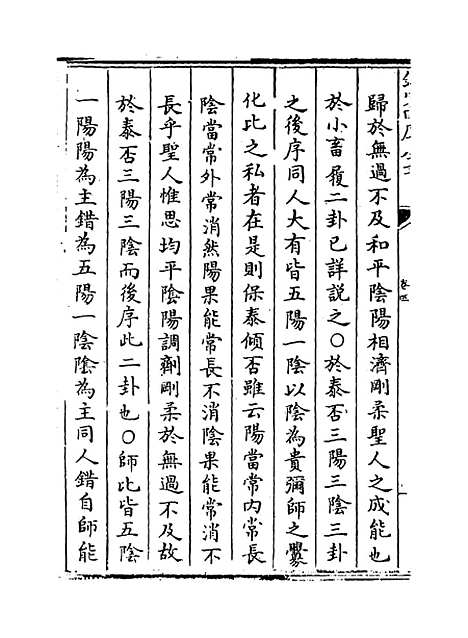 歸於無過不及和平陰陽相濟剛柔聖人之成能也
於小畜履二卦已詳説之〇於泰否三陽三陰三卦
之後序同人大有皆五陽一陰以陰為貴彌師之釁
化比之私者在是則保泰傾否雖云陽當常内常長
陰當常外常消然陽果能常長不消陰果能常消不
長乎聖人惟思均平陰陽調劑剛柔於無過不及故
於泰否三陽三陰而後序此二卦也〇師比皆五陰
一陽陽為主錯為五陽一陰陰為主同人錯自師能
卷四